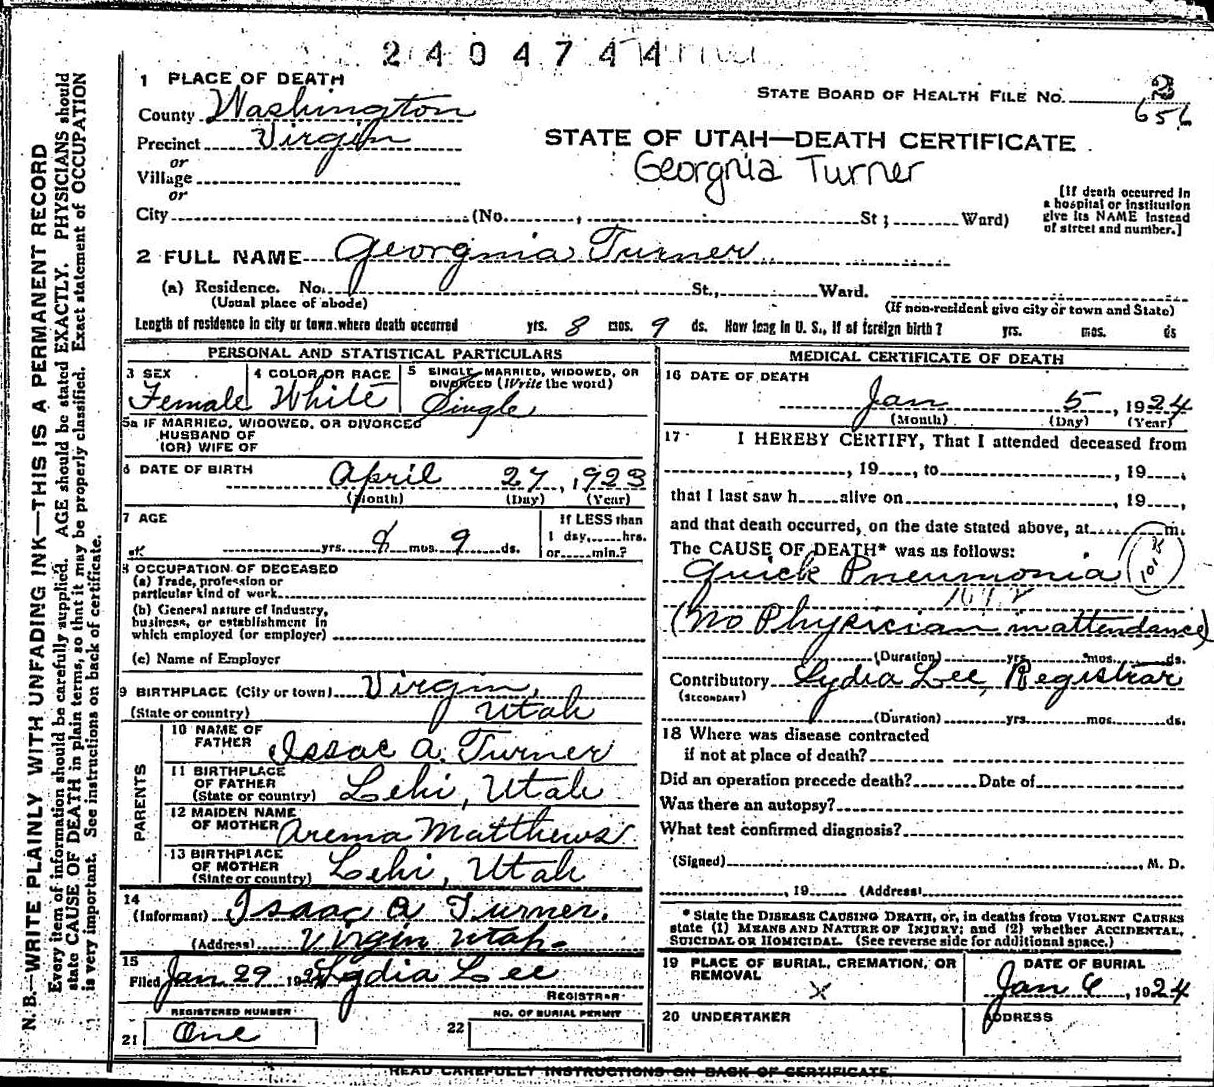 2404744
1 PLACE OF DEATH
STATE BOARD OF HEALTH FILE NO. 2
656
County Washington
Precinct Virgin
STATE OF UTAH—DEATH CERTIFICATE
or
Village
Georgnia Turner
or
City (No. , St; Ward)
[If death occurred in
a hospital or institution
give its NAME instead
of street and number.]
2 FULL NAME Georgnia Turner
(a) Residence. No. St., Ward.
(Usual place of abode)
(If non-resident give city or town and State)
Length of residence in city or town where death occurred yrs. 8 mos. 9 ds. How long in U. S., if of foreign birth? yrs. mos. ds
PERSONAL AND STATISTICAL PARTICULARS
3 SEX
Female
4 COLOR OR RACE
White
5 SINGLE, MARRIED, WIDOWED, OR
DIVORCED (Write the word)
Single
5a IF MARRIED, WIDOWED, OR DIVORCED
HUSBAND OF
(OR) WIFE OF
6 DATE OF BIRTH
April 27, 1923
(Month) (Day) (Year)
7 AGE
yrs. 8 mos. 9 ds.
If LESS than
1 day, hrs.
or min.?
8 OCCUPATION OF DECEASED
(a) Trade, profession or
particular kind of work
(b) General nature of Industry,
business, or establishment in
which employed (or employer)
(c) Name of Employer
9 BIRTHPLACE (City or town) Virgin,
(State or country) Utah
PARENTS
10 NAME OF
FATHER Issac A. Turner
11 BIRTHPLACE
OF FATHER
(State or country) Lehi, Utah
12 MAIDEN NAME
OF MOTHER Arema Matthews
13 BIRTHPLACE
OF MOTHER
(State or country) Lehi, Utah
14
(Informant) Isaac A Turner.
(Address) Virgin Utah.
15
Filed Jan 29 1924 Lydia Lee
REGISTRAR
REGISTERED NUMBER
21 One
NO. OF BURIAL PERMIT
22
MEDICAL CERTIFICATE OF DEATH
16 DATE OF DEATH
Jan 5, 1924
(Month) (Day) (Year)
17 I HEREBY CERTIFY, That I attended deceased from
, 19 , to , 19 ,
that I last saw h alive on , 19 ,
and that death occurred, on the date stated above, at m.
The CAUSE OF DEATH* was as follows:
Quick Pneumonia
(No Physician in attendance)
(Duration) yrs. mos. ds.
Contributory Lydia Lee, Registrar
(SECONDARY)
(Duration) yrs. mos. ds.
18 Where was disease contracted
if not at place of death?
Did an operation precede death? Date of
Was there an autopsy?
What test confirmed diagnosis?
(Signed) , M. D.
, 19 (Address)
* State the DISEASE CAUSING DEATH, or, in deaths from VIOLENT CAUSES
state (1) MEANS AND NATURE OF INJURY; and (2) whether ACCIDENTAL,
SUICIDAL or HOMICIDAL. (See reverse side for additional space.)
19 PLACE OF BURIAL, CREMATION, OR
REMOVAL
X
DATE OF BURIAL
Jan 6, 1924
20 UNDERTAKER
ADDRESS
READ CAREFULLY INSTRUCTIONS ON BACK OF CERTIFICATE.
N. B.—WRITE PLAINLY WITH UNFADING INK—THIS IS A PERMANENT RECORD
Every item of information should be carefully supplied. AGE should be stated EXACTLY. PHYSICIANS should
state CAUSE OF DEATH in plain terms, so that it may be properly classified. Exact statement of OCCUPATION
is very important. See instructions on back of certificate.